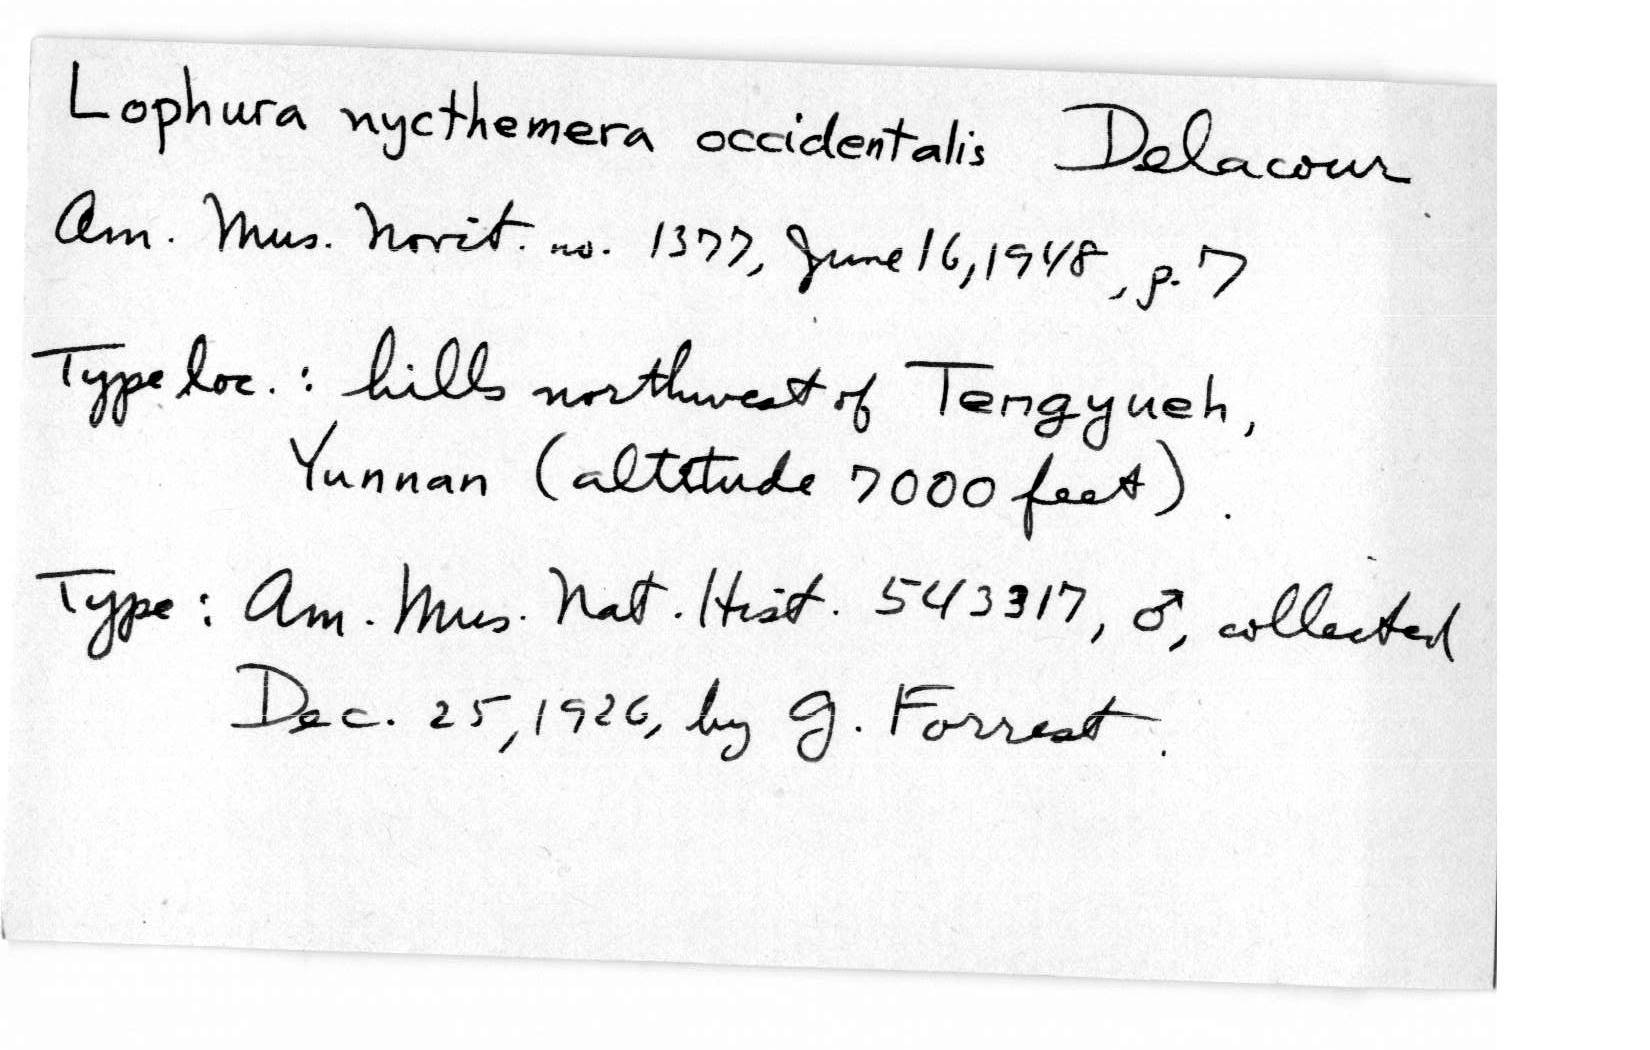 Lophura nycthemera occidentalis Delacour
Am. Mus. Novit. no. 1377, June 16, 1948, p. 7
Type loc.: hills northwest of Tengyueh,
Yunnan (altitude 7000 feet).
Type: Am. Mus. Nat. Hist. 543317, ♂, collected
Dec. 25, 1926, by G. Forrest.